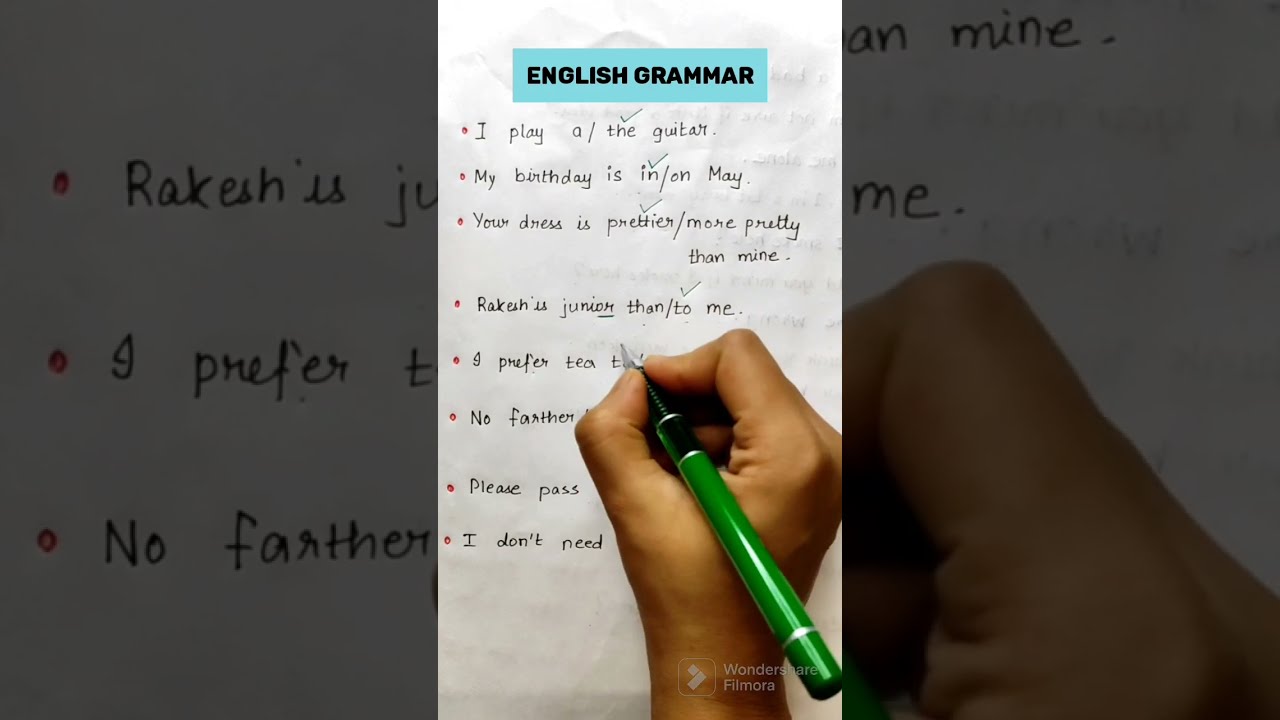 ENGLISH GRAMMAR
• I play a/ the guitar.
• My birthday is in/on May.
• Your dress is prettier/more pretty
than mine.
• Rakesh is junior than/to me.
• I prefer tea
• No farther
• Please pass
• I don't need
Wondershare
Filmora
han mine.
Rakesh is ju
me.
I prefer t
No farther